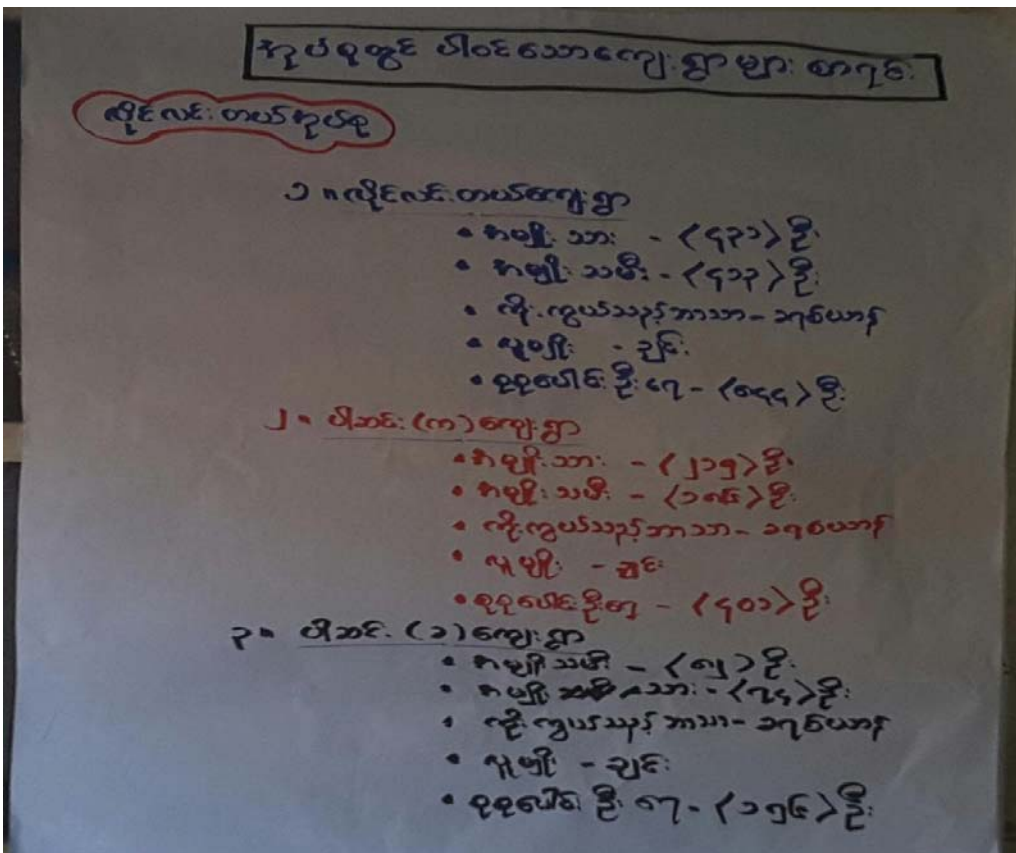 အုပ်စုတွင် ပါဝင်သောကျေးရွာများ စာရင်း
လိုင်လင်းတယ်အုပ်စု
၁။ လိုင်လင်းတယ်ကျေးရွာ
• အမျိုးသား - <၄၃၁> ဦး
• အမျိုးသမီး - <၄၁၃> ဦး
• ကိုးကွယ်သည့်ဘာသာ - ခရစ်ယာန်
• လူမျိုး - ချင်း
• စုစုပေါင်းဦးရေ - <၈၄၄> ဦး
၂။ ပါဆင်း (က) ကျေးရွာ
• အမျိုးသား - <၂၁၅> ဦး
• အမျိုးသမီး - <၁၈၆> ဦး
• ကိုးကွယ်သည့်ဘာသာ - ခရစ်ယာန်
• လူမျိုး - ချင်း
• စုစုပေါင်းဦးရေ - <၄၀၁> ဦး
၃။ ပါဆင်း (ခ) ကျေးရွာ
• အမျိုးသမီး - <၈၂> ဦး
• အမျိုးသား - <၇၄> ဦး
• ကိုးကွယ်သည့်ဘာသာ - ခရစ်ယာန်
• လူမျိုး - ချင်း
• စုစုပေါင်းဦးရေ - <၁၅၆> ဦး